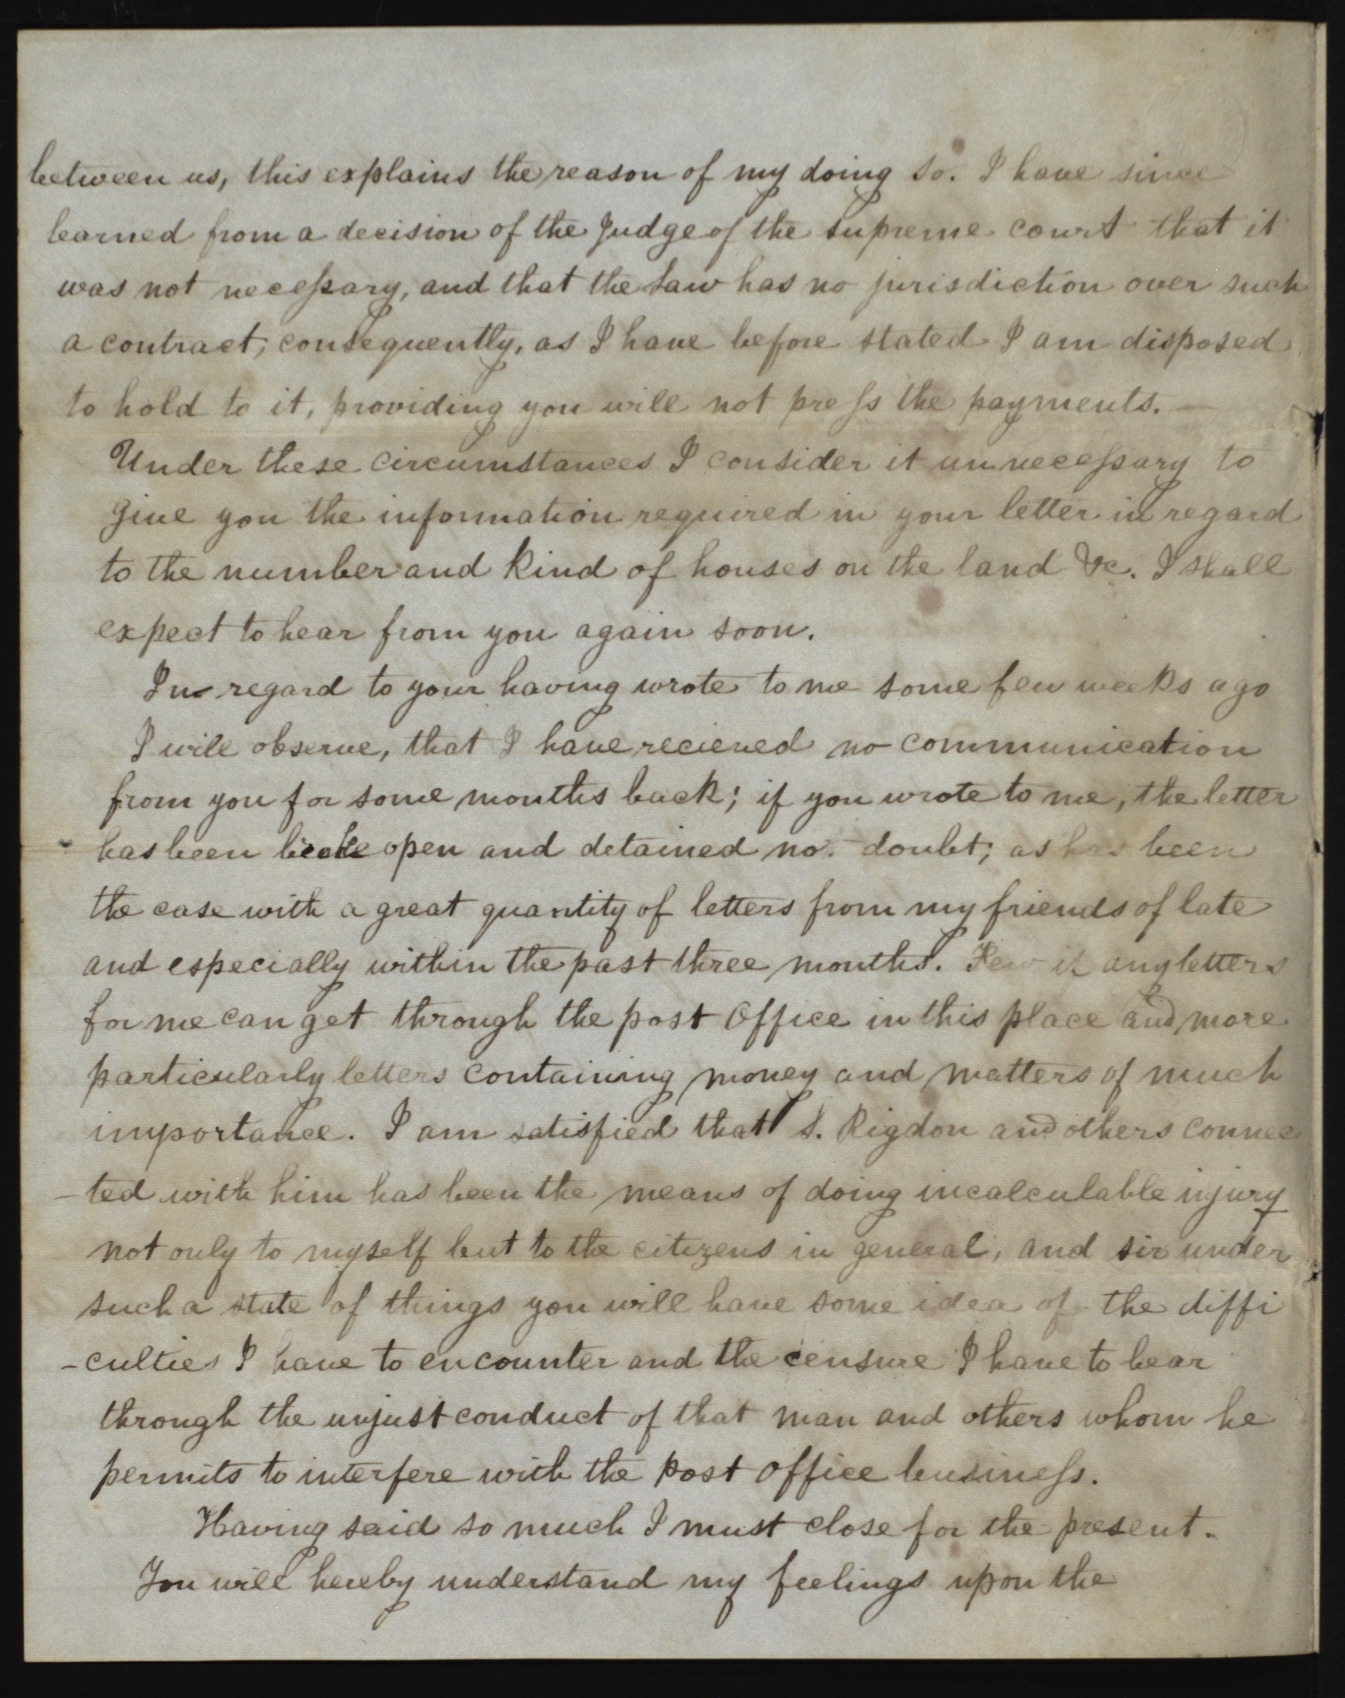 between us, this explains the reason of my doing so. I have since
learned from a decision of the Judge of the supreme court that it
was not necessary, and that the Law has no jurisdiction over such
a contract; consequently, as I have before stated I am disposed
to hold to it, providing you will not press the payments. —
Under these circumstances I consider it unnecessary to
give you the information required in your letter in regard
to the number and kind of houses on the land &c. I shall
expect to hear from you again soon.
In regard to your having wrote to me some few weeks ago
I will observe, that I have recieved no communication
from you for some months back; if you wrote to me, the letter
has been broke open and detained no doubt; as has been
the case with a great quantity of letters from my friends of late
and especially within the past three months. Few if any letters
for me can get through the post Office in this place and more
particularly letters containing money and matters of much
importance. I am satisfied that S. Rigdon and others connec
-ted with him has been the means of doing incalculable injury
not only to myself but to the citizens in general, and sir under
such a state of things you will have some idea of the diffi
-culties I have to encounter and the censure I have to bear
through the unjust conduct of that man and others whom he
permits to interfere with the post office business.
Having said so much I must close for the present.
You will hereby understand my feelings upon the